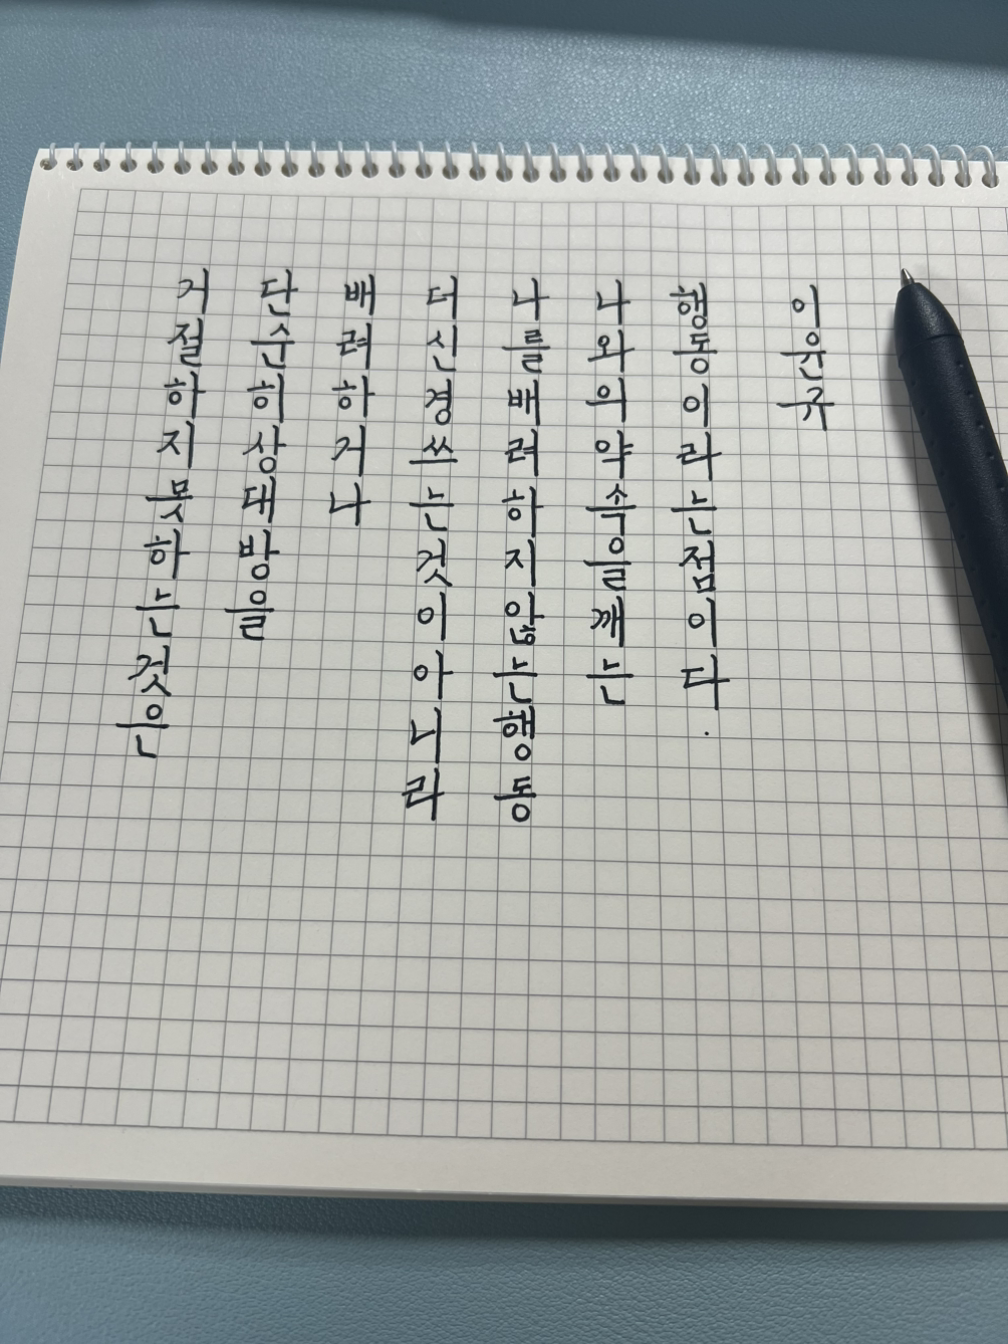 거절하지못하는것은
단순히상대방을
배려하거나
더신경쓰는것이아니라
나를배려하지않는행동
나와의약속을깨는
행동이라는점이다.
이윤규